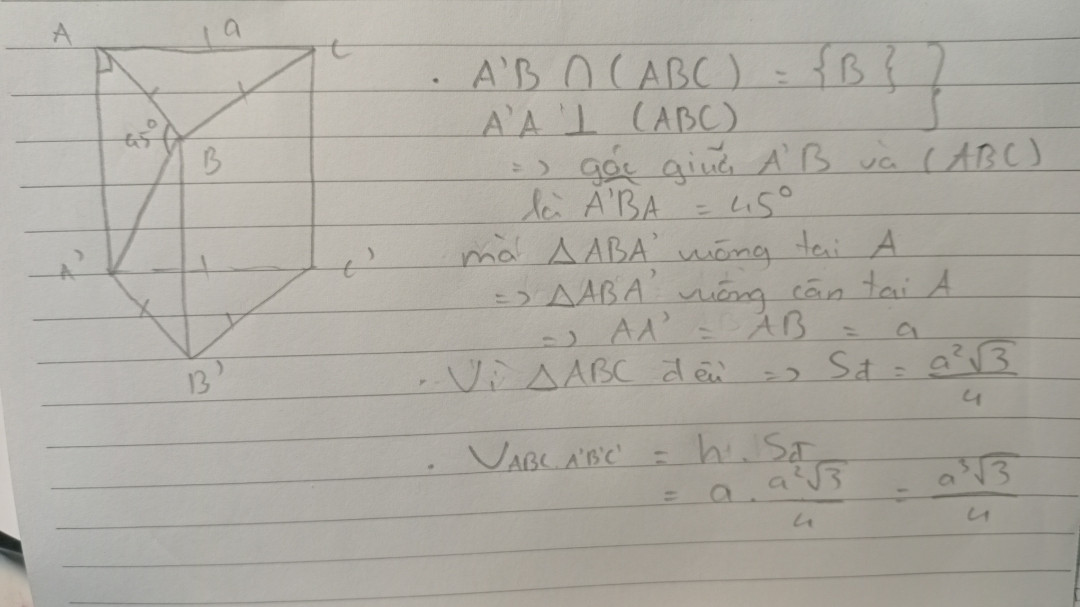 A
a
C
45°
B
A'
C'
B'
. A'B ∩ (ABC) = {B}
A'A ⊥ (ABC)
=> góc giữa A'B và (ABC)
là A'BA = 45°
mà △ABA' vuông tại A
=> △ABA' vuông cân tại A
=> AA' = AB = a
. Vì △ABC đều => Sđ = a²√3/4
. VABC.A'B'C' = h . Sđ
= a . a²√3/4 = a³√3/4